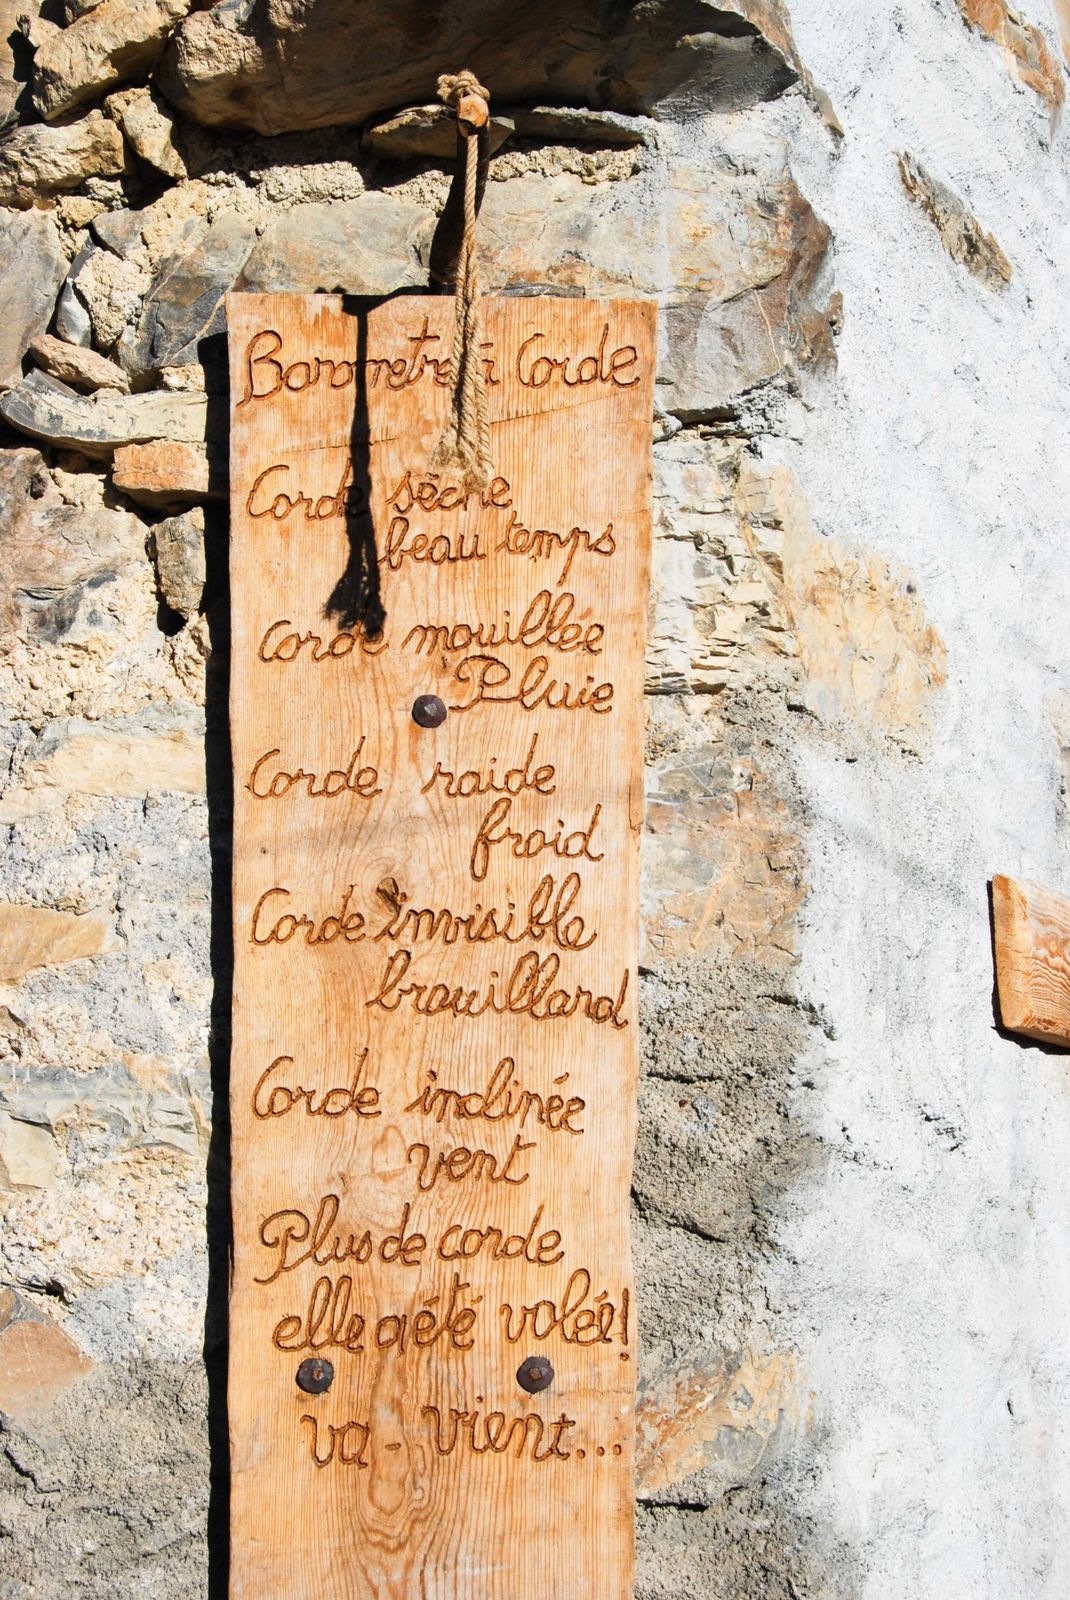 Barometre à Corde
Corde sèche
beau temps
Corde mouillée
Pluie
Corde raide
froid
Corde invisible
brouillard
Corde inclinée
vent
Plus de corde
elle a été volée!
va-vient...